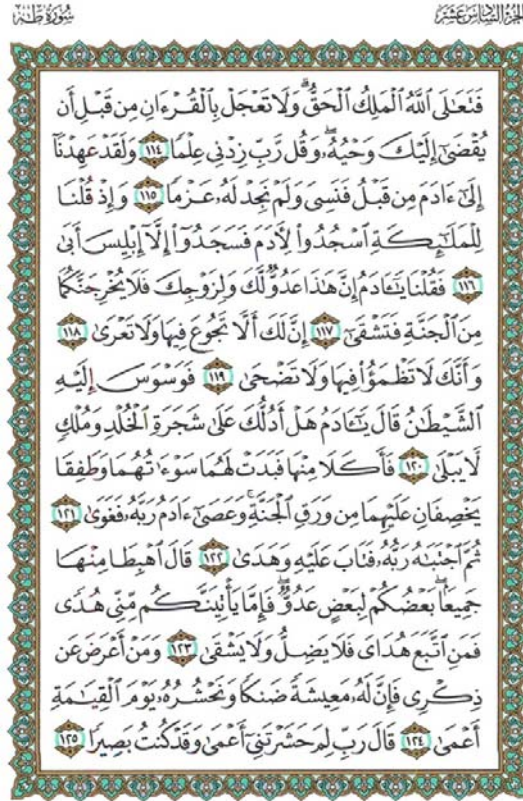 سُورَةُ طه
الجزء السادس عشر
فَتَعَٰلَى ٱللَّهُ ٱلْمَلِكُ ٱلْحَقُّ ۗ وَلَا تَعْجَلْ بِٱلْقُرْءَانِ مِن قَبْلِ أَن
يُقْضَىٰٓ إِلَيْكَ وَحْيُهُۥ ۖ وَقُل رَّبِّ زِدْنِى عِلْمًا ١١٤ وَلَقَدْ عَهِدْنَآ
إِلَىٰٓ ءَادَمَ مِن قَبْلُ فَنَسِىَ وَلَمْ نَجِدْ لَهُۥ عَزْمًا ١١٥ وَإِذْ قُلْنَا
لِلْمَلَٰٓئِكَةِ ٱسْجُدُوا۟ لِءَادَمَ فَسَجَدُوٓا۟ إِلَّآ إِبْلِيسَ أَبَىٰ
١١٦ فَقُلْنَا يَٰٓـَٔادَمُ إِنَّ هَٰذَا عَدُوٌّ لَّكَ وَلِزَوْجِكَ فَلَا يُخْرِجَنَّكُمَا
مِنَ ٱلْجَنَّةِ فَتَشْقَىٰٓ ١١٧ إِنَّ لَكَ أَلَّا تَجُوعَ فِيهَا وَلَا تَعْرَىٰ ١١٨
وَأَنَّكَ لَا تَظْمَؤُا۟ فِيهَا وَلَا تَضْحَىٰ ١١٩ فَوَسْوَسَ إِلَيْهِ
ٱلشَّيْطَٰنُ قَالَ يَٰٓـَٔادَمُ هَلْ أَدُلُّكَ عَلَىٰ شَجَرَةِ ٱلْخُلْدِ وَمُلْكٍ
لَّا يَبْلَىٰ ١٢٠ فَأَكَلَا مِنْهَا فَبَدَتْ لَهُمَا سَوْءَٰتُهُمَا وَطَفِقَا
يَخْصِفَانِ عَلَيْهِمَا مِن وَرَقِ ٱلْجَنَّةِ ۚ وَعَصَىٰٓ ءَادَمُ رَبَّهُۥ فَغَوَىٰ ١٢١
ثُمَّ ٱجْتَبَٰهُ رَبُّهُۥ فَتَابَ عَلَيْهِ وَهَدَىٰ ١٢٢ قَالَ ٱهْبِطَا مِنْهَا
جَمِيعًۢا ۖ بَعْضُكُمْ لِبَعْضٍ عَدُوٌّ ۖ فَإِمَّا يَأْتِيَنَّكُم مِّنِّى هُدًى
فَمَنِ ٱتَّبَعَ هُدَاىَ فَلَا يَضِلُّ وَلَا يَشْقَىٰ ١٢٣ وَمَنْ أَعْرَضَ عَن
ذِكْرِى فَإِنَّ لَهُۥ مَعِيشَةً ضَنكًا وَنَحْشُرُهُۥ يَوْمَ ٱلْقِيَٰمَةِ
أَعْمَىٰ ١٢٤ قَالَ رَبِّ لِمَ حَشَرْتَنِىٓ أَعْمَىٰ وَقَدْ كُنتُ بَصِيرًا ١٢٥